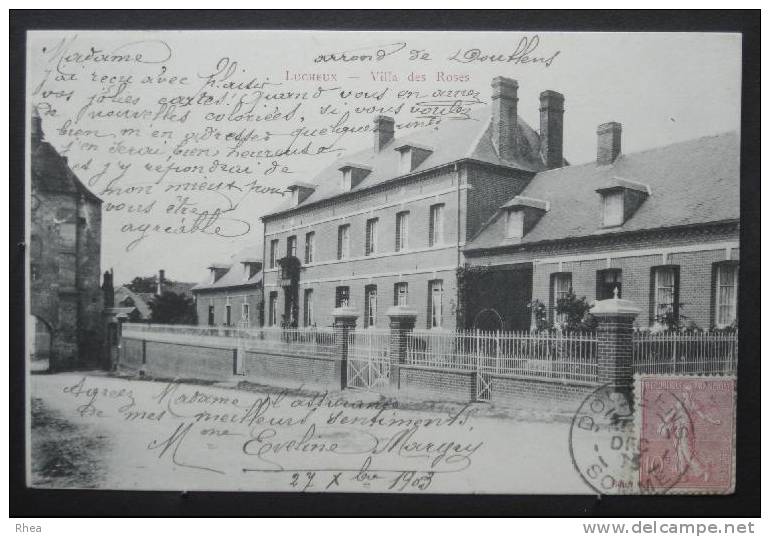 Madame
arrond de Doullens
LUCHEUX — Villa des Roses
J'ai reçu avec plaisir
vos jolies cartes. Quand vous en aurez
de nouvelles coloriées, si vous voulez
bien m'en adresser quelques unes
j'en serai bien heureuse
et j'y répondrai de
mon mieux pour
vous être
agréable
Agréez Madame l'assurance
de mes meilleurs sentiments.
Mme Eveline Margry
27 Xbre 1903
DOULLENS
DEC
SOMME
Rhea
www.delcampe.net